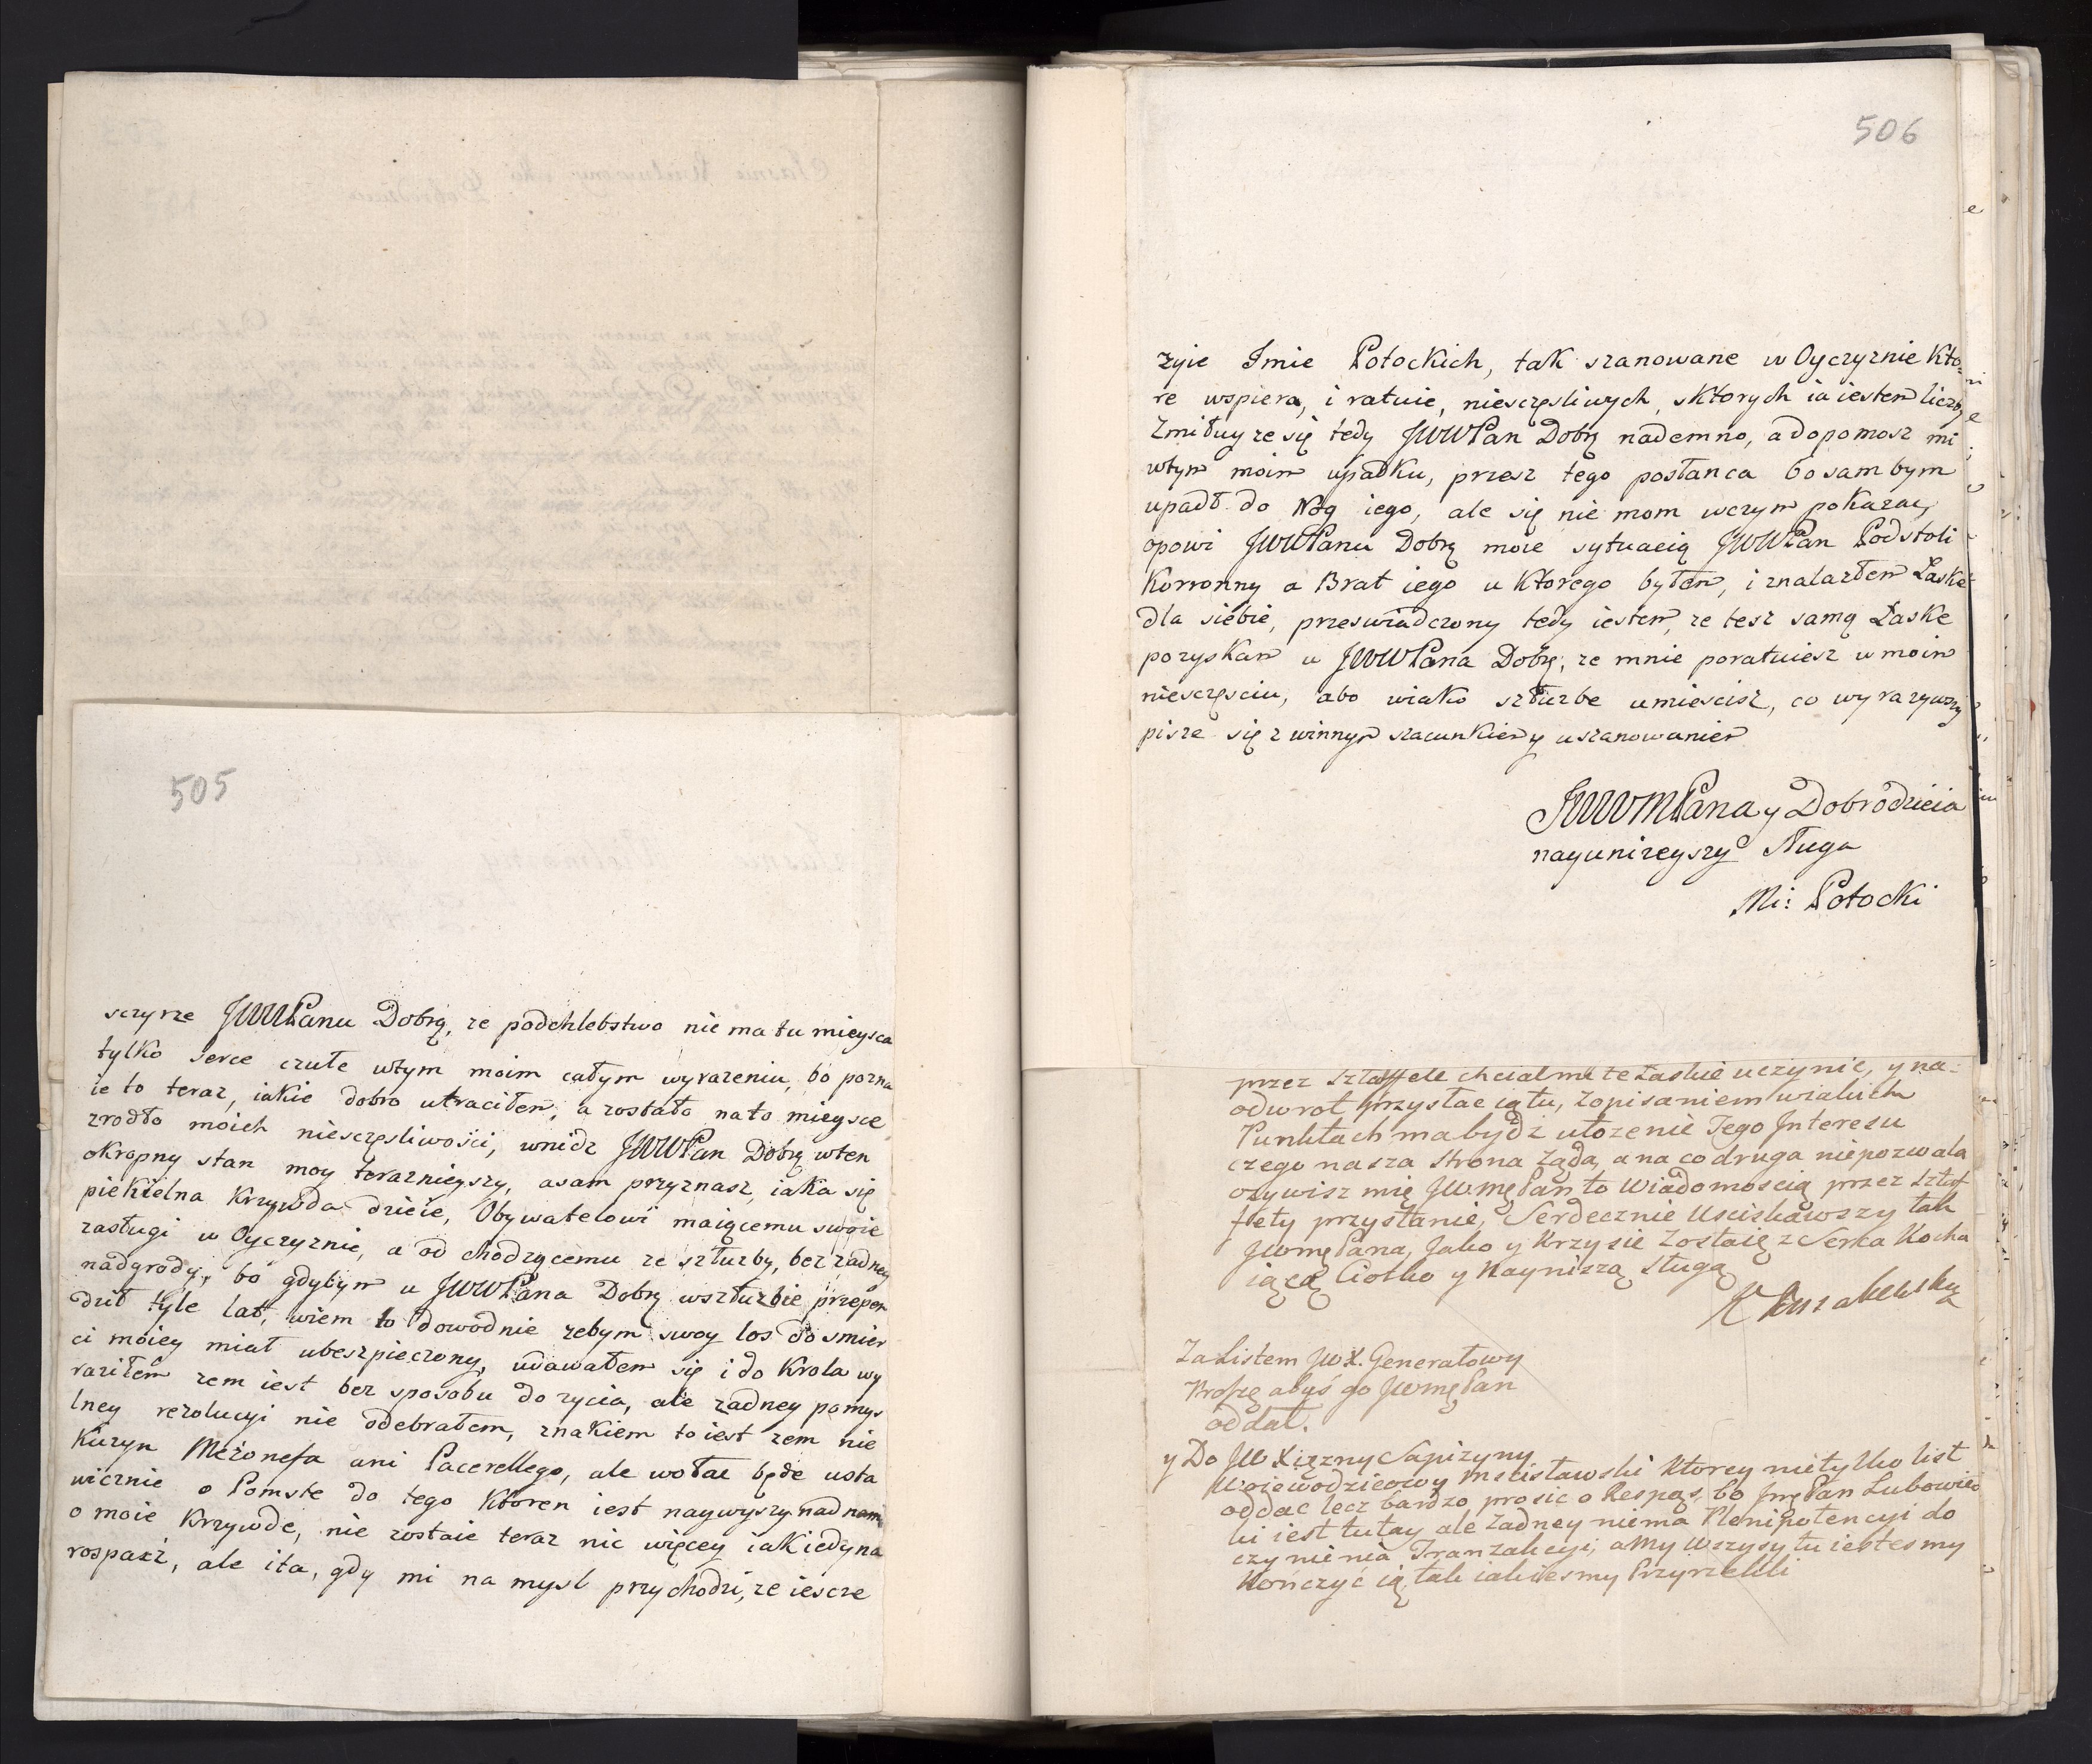 505
sczyrze JWWPanu Dobrą, ze podchlebstwo nie ma tu mieysca
tylko serce czułe wtym moim całym wyrazeniu, bo pozna
ie to teraz, iakie dobro utraciłem, a zostało na to mieysce
zrodło moich niesczęsliwości, wnidz JWWPan Dobrą wten
okropny stan moy teraznieyszy, a sam przyznasz, iaka się
piekielna Krzywda dzieie, Obywatelowi maiącemu swoie
zasługi w Oyczyznie, a od chodzącemu ze szłuzby, bez zadney
nadgrody, bo gdybym u JWWPana Dobrą wszłuzbie przepen
dził tyle lat, wiem to dowodnie zebym swoy los do smier
ci moiey miał ubeszpieczony, udawałem się i do Krola wy
raziłem zem iest bez sposobu do zycia, ale zadney pomys
lney rezolucyi nie odebrałem, znakiem to iest zem nie
Kuzyn Mezonefa ani Pacerellego, ale wołac będe usta
wicznie o Pomste do tego Ktoren iest naywyszy nad nami
o moie Krzywde, nie zostaie teraz nic więcey iak iedyna
rospacz, ale i ta, gdy mi na mysl przychodzi, ze iescze
506
zyie Jmie Potockich, tak szanowane w Oyczyznie Kto=
re wspiera, i ratuie, niesczęsliwych, sktorych ia iestem liczby
Zmiłuy ze się tedy JWWPan Dobrą nademno, a dopomosz mi
wtym moim upadku, przesz tego posłanca bo sam bym
upadł do Nóg iego, ale się nie mom wczym pokazac,
opowi JWWPanu Dobrą moie sytuacią JWWPan Podstoli
Korronny a Brat iego u Ktorego byłem, i znalazłem Łaske
dla siebie, przeswiadczony tedy iestem, ze tesz samą Łaske
pozyskam u JWWPana Dobrą, ze mnie poratuiesz w moim
niesczęsciu, abo wiako szłuzbe umiescisz, co wyrazywszy
pisze się z winnym szacunkiem y uszanowaniem
JWWMPana y Dobrodzieia
nayunizeyszy sługa
Mi: Potocki
przez sztaffete chciał mi te Łaskie uczynic, y na=
odwrot przysłac ią tu, zopisaniem wiakich
Punktach ma bydz ułozenie Tego Interesu
czego nasza strona ząda, a na co druga niepozwala
ozywisz mię JWmę Pan to Wiadomoscią przez sztaf
fety przysłanie, Serdecznie Usciskawszy tak
JWmę Pana, Jako y Krzysie Zostaię z Serca Kocha
iącą Ciotko y Naynizzą sługą
Za Listem JWX. Generałowy
Proszę abyś go JWmę Pan
oddał.
y Do JW Xięzny Sapiżyny
Woiewodzicowy Mscisławski Ktorey nietylko list
oddac lecz bardzo prosic o Respąs, bo Jmę Pan Lubowiec
ki iest tutay ale Zadney niema Plenipotencyi do
czynienia Tranzakcyi, a My Wszysy tu iestesmy
Kończyć ią, tak iakiesmy Przyrzekli